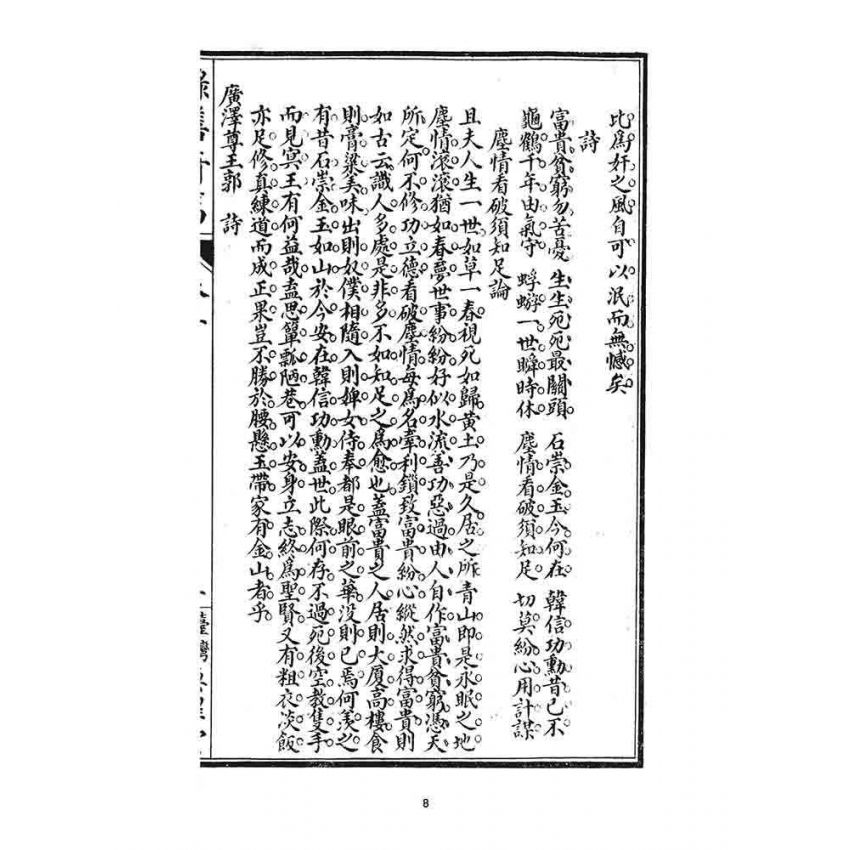 比為奸之風自可以泯而無憾矣
詩
富貴貧窮勿苦憂 生生死死最關頭 石崇金玉今何在 韓信功勳昔已不
龜鶴千年由氣守 蜉蝣一世瞬時休 塵情看破須知足 切莫紛心用計謀
塵情看破須知足論
且夫人生一世如草一春視死如歸黃土乃是久居之所青山即是永眠之地
塵情滾滾猶如春夢世事紛紛好似水流善功惡過由人自作富貴貧窮憑天
所定何不修功立德看破塵情每為名牽利鎖致富貴紛心縱然求得富貴則
如古云識人多處是非多不如知足之為愈也蓋富貴之人居則大厦高樓食
則膏粱美味出則奴僕相隨入則婢女侍奉都是眼前之華没則已焉何羡之
有昔石崇金玉如山於今安在韓信功勳蓋世此際何存不過死後空教隻手
而見冥王有何益哉盍思簞瓢陋巷可以安身立志終為聖賢又有粗衣淡飯
亦足修真練道而成正果豈不勝於腰懸玉帶家有金山者乎
廣澤尊王郭 詩
8